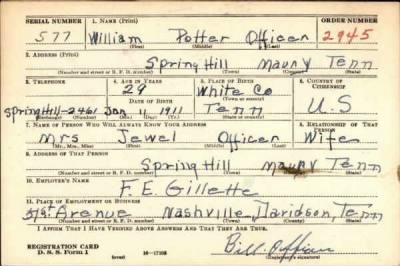 SERIAL NUMBER 1. NAME (Print) ORDER NUMBER
577 William Potter Officer 2945
(First) (Middle) (Last)
2. ADDRESS (Print)
Spring Hill Maury Tenn
(Number and street or R. F. D. number) (Town) (County) (State)
3. TELEPHONE 4. AGE IN YEARS 5. PLACE OF BIRTH 6. COUNTRY OF CITIZENSHIP
29 White Co
DATE OF BIRTH (Town or county)
Spring Hill-2461 Jan 11 1911 Tenn U.S
(Exchange) (Number) (Mo.) (Day) (Yr.) (State or country)
7. NAME OF PERSON WHO WILL ALWAYS KNOW YOUR ADDRESS 8. RELATIONSHIP OF THAT PERSON
Mrs Jewel Officer Wife
(Mr., Mrs., Miss) (First) (Middle) (Last)
9. ADDRESS OF THAT PERSON
Spring Hill Maury Tenn
(Number and street or R. F. D. number) (Town) (County) (State)
10. EMPLOYER'S NAME
F. E. Gillette
11. PLACE OF EMPLOYMENT OR BUSINESS
51st Avenue Nashville, Davidson, Tenn
(Number and street or R. F. D. number) (Town) (County) (State)
I AFFIRM THAT I HAVE VERIFIED ABOVE ANSWERS AND THAT THEY ARE TRUE.
REGISTRATION CARD
D. S. S. Form 1 (over) 16—17105 Bill Officer
(Registrant's signature)